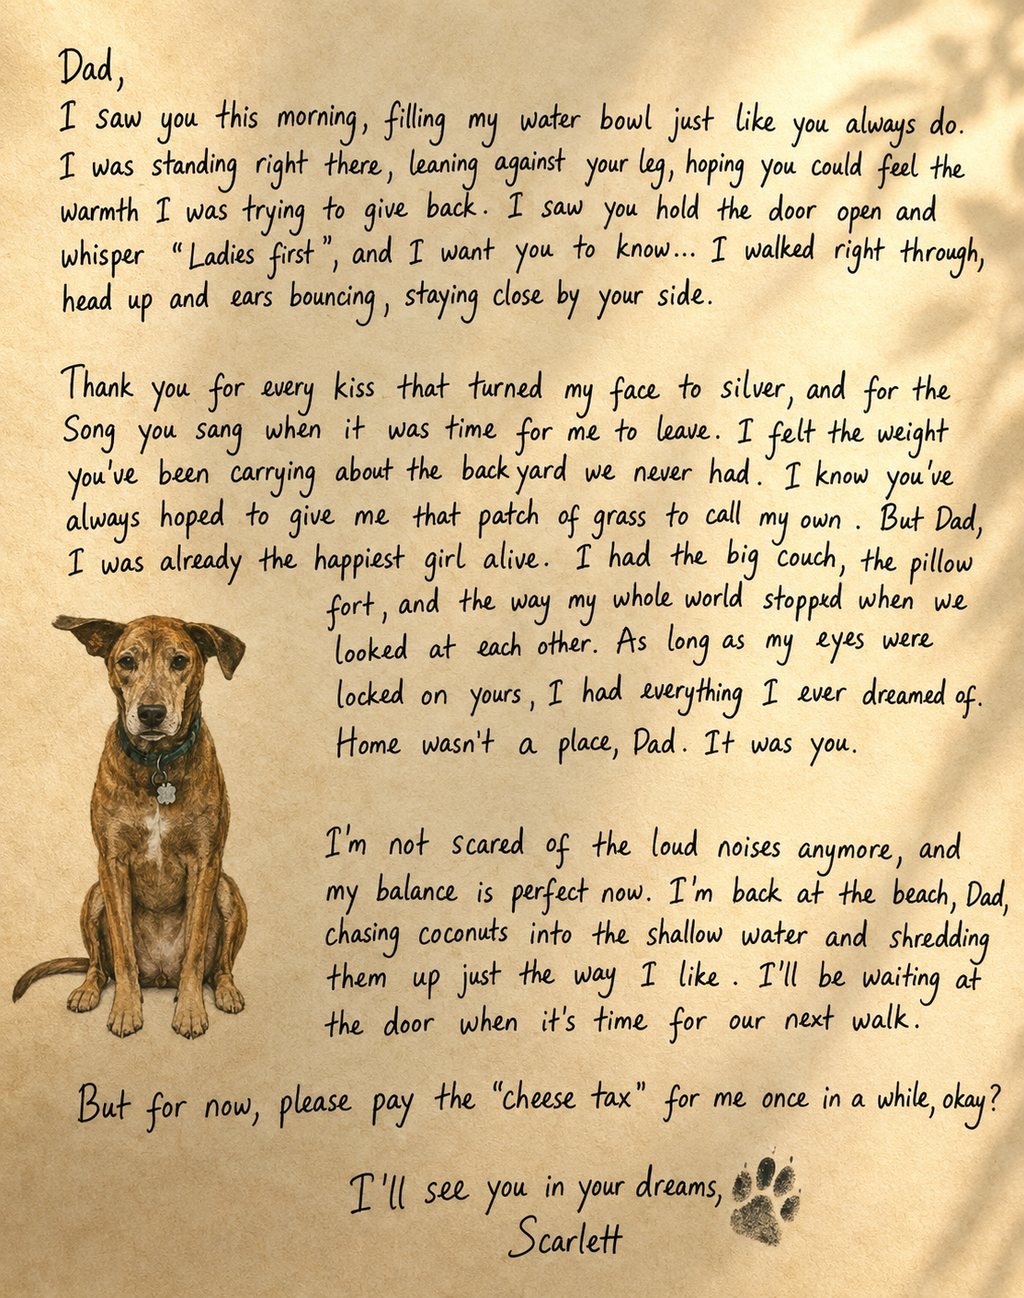 Dad,
I saw you this morning, filling my water bowl just like you always do.
I was standing right there, leaning against your leg, hoping you could feel the
warmth I was trying to give back. I saw you hold the door open and
whisper "Ladies first", and I want you to know... I walked right through,
head up and ears bouncing, staying close by your side.
Thank you for every kiss that turned my face to silver, and for the
Song you sang when it was time for me to leave. I felt the weight
you've been carrying about the back yard we never had. I know you've
always hoped to give me that patch of grass to call my own. But Dad,
I was already the happiest girl alive. I had the big couch, the pillow
fort, and the way my whole world stopped when we
looked at each other. As long as my eyes were
locked on yours, I had everything I ever dreamed of.
Home wasn't a place, Dad. It was you.
I'm not scared of the loud noises anymore, and
my balance is perfect now. I'm back at the beach, Dad,
chasing coconuts into the shallow water and shredding
them up just the way I like. I'll be waiting at
the door when it's time for our next walk.
But for now, please pay the "cheese tax" for me once in a while, okay?
I'll see you in your dreams,
Scarlett